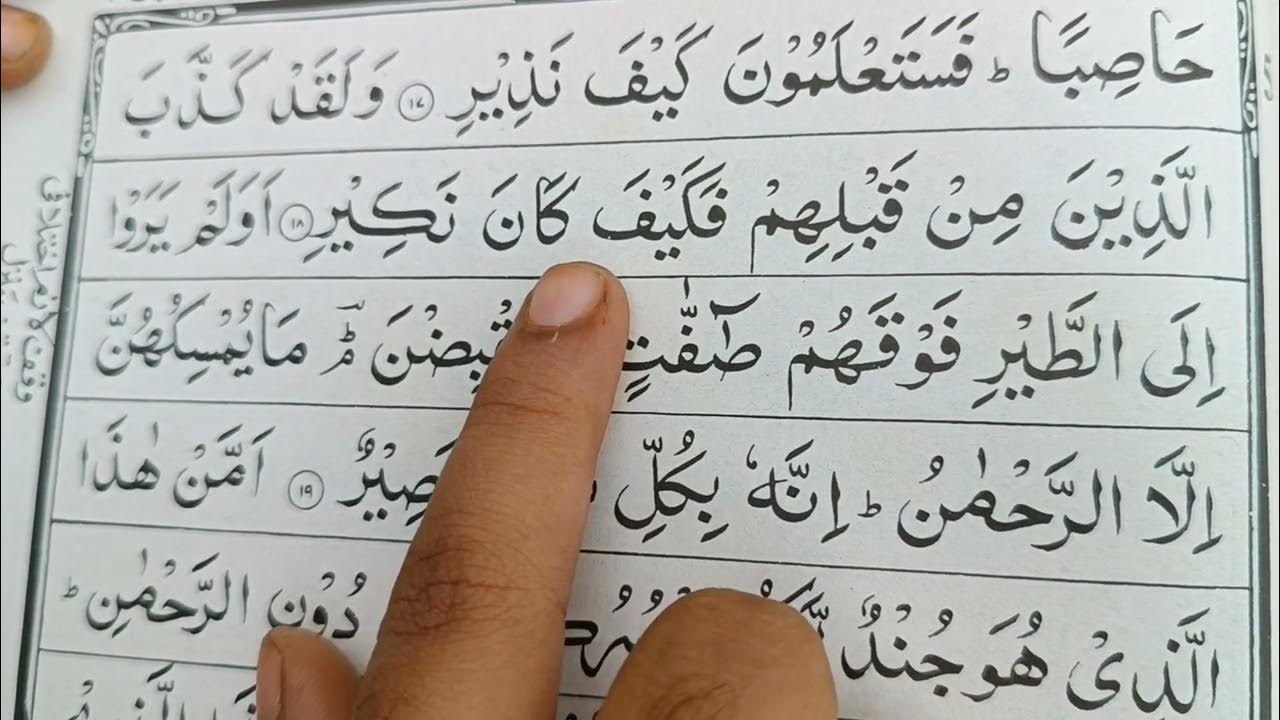 حَاصِبًا ؕ فَسَتَعْلَمُوْنَ كَيْفَ نَذِيْرِ ۝۱۷ وَلَقَدْ كَذَّبَ
الَّذِيْنَ مِنْ قَبْلِهِمْ فَكَيْفَ كَانَ نَكِيْرِ ۝۱۸ اَوَلَمْ يَرَوْا
اِلَى الطَّيْرِ فَوْقَهُمْ صٰٓفّٰتٍ ؔ مَا يُمْسِكُهُنَّ
اِلَّا الرَّحْمٰنُ ؕ اِنَّهٗ بِكُلِّ ۝۱۹ اَمَّنْ هٰذَا
الَّذِیْ هُوَ جُنْدٌ دُوْنِ الرَّحْمٰنِ ؕ